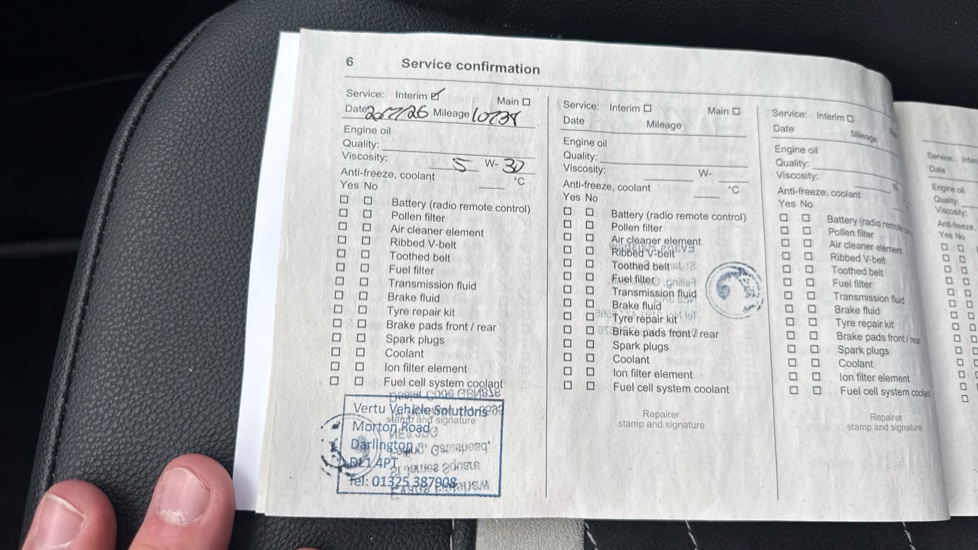 6 Service confirmation
Service: Interim Main
Date Mileage
Engine oil
Quality:
Viscosity: 5 W- 30
Anti-freeze, coolant °C
Yes No
Battery (radio remote control)
Pollen filter
Air cleaner element
Ribbed V-belt
Toothed belt
Fuel filter
Transmission fluid
Brake fluid
Tyre repair kit
Brake pads front / rear
Spark plugs
Coolant
Ion filter element
Fuel cell system coolant
stamp and signature
Vertu Vehicle Solutions
Morton Road
Darlington
DL1 4PT
Tel: 01325 387908
Service: Interim Main
Date Mileage
Engine oil
Quality:
Viscosity: W-
Anti-freeze, coolant °C
Yes No
Battery (radio remote control)
Pollen filter
Air cleaner element
Ribbed V-belt
Toothed belt
Fuel filter
Transmission fluid
Brake fluid
Tyre repair kit
Brake pads front / rear
Spark plugs
Coolant
Ion filter element
Fuel cell system coolant
Repairer
stamp and signature
Service: Interim
Date Mileage
Engine oil
Quality:
Viscosity:
Anti-freeze, coolant
Yes No
Battery (radio remote
Pollen filter
Air cleaner element
Ribbed V-belt
Toothed belt
Fuel filter
Transmission fluid
Brake fluid
Tyre repair kit
Brake pads front / rear
Spark plugs
Coolant
Ion filter element
Fuel cell system coolant
Repairer
stamp and signature
Service:
Date
Engine oil
Quality:
Viscosity:
Anti-freeze,
Yes No